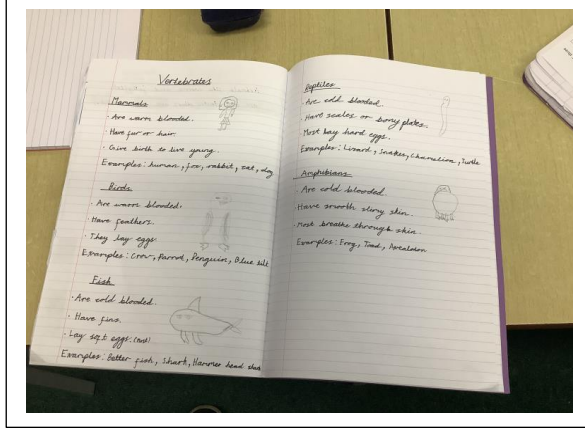 Vertebrates
Mammals
· Are warm blooded.
· Have fur or hair.
· Give birth to live young.
Examples: human, fox, rabbit, cat, dog
Birds
· Are warm blooded.
· Have feathers.
· They lay eggs.
Examples: Crow, Parrot, Penguin, Blue
Fish
· Are cold blooded.
· Have fins.
· Lay soft eggs. (most)
Examples: Better fish, Shark, Hammer head
Reptiles
· Are cold blooded.
· Have scales or bony plates.
· Most lay hard eggs.
Examples: Lizard, Snakes, Chameleon, Turtle
Amphibians
· Are cold blooded.
· Have smooth slimy skin.
· Most breathe through skin.
Examples: Frog, Toad,